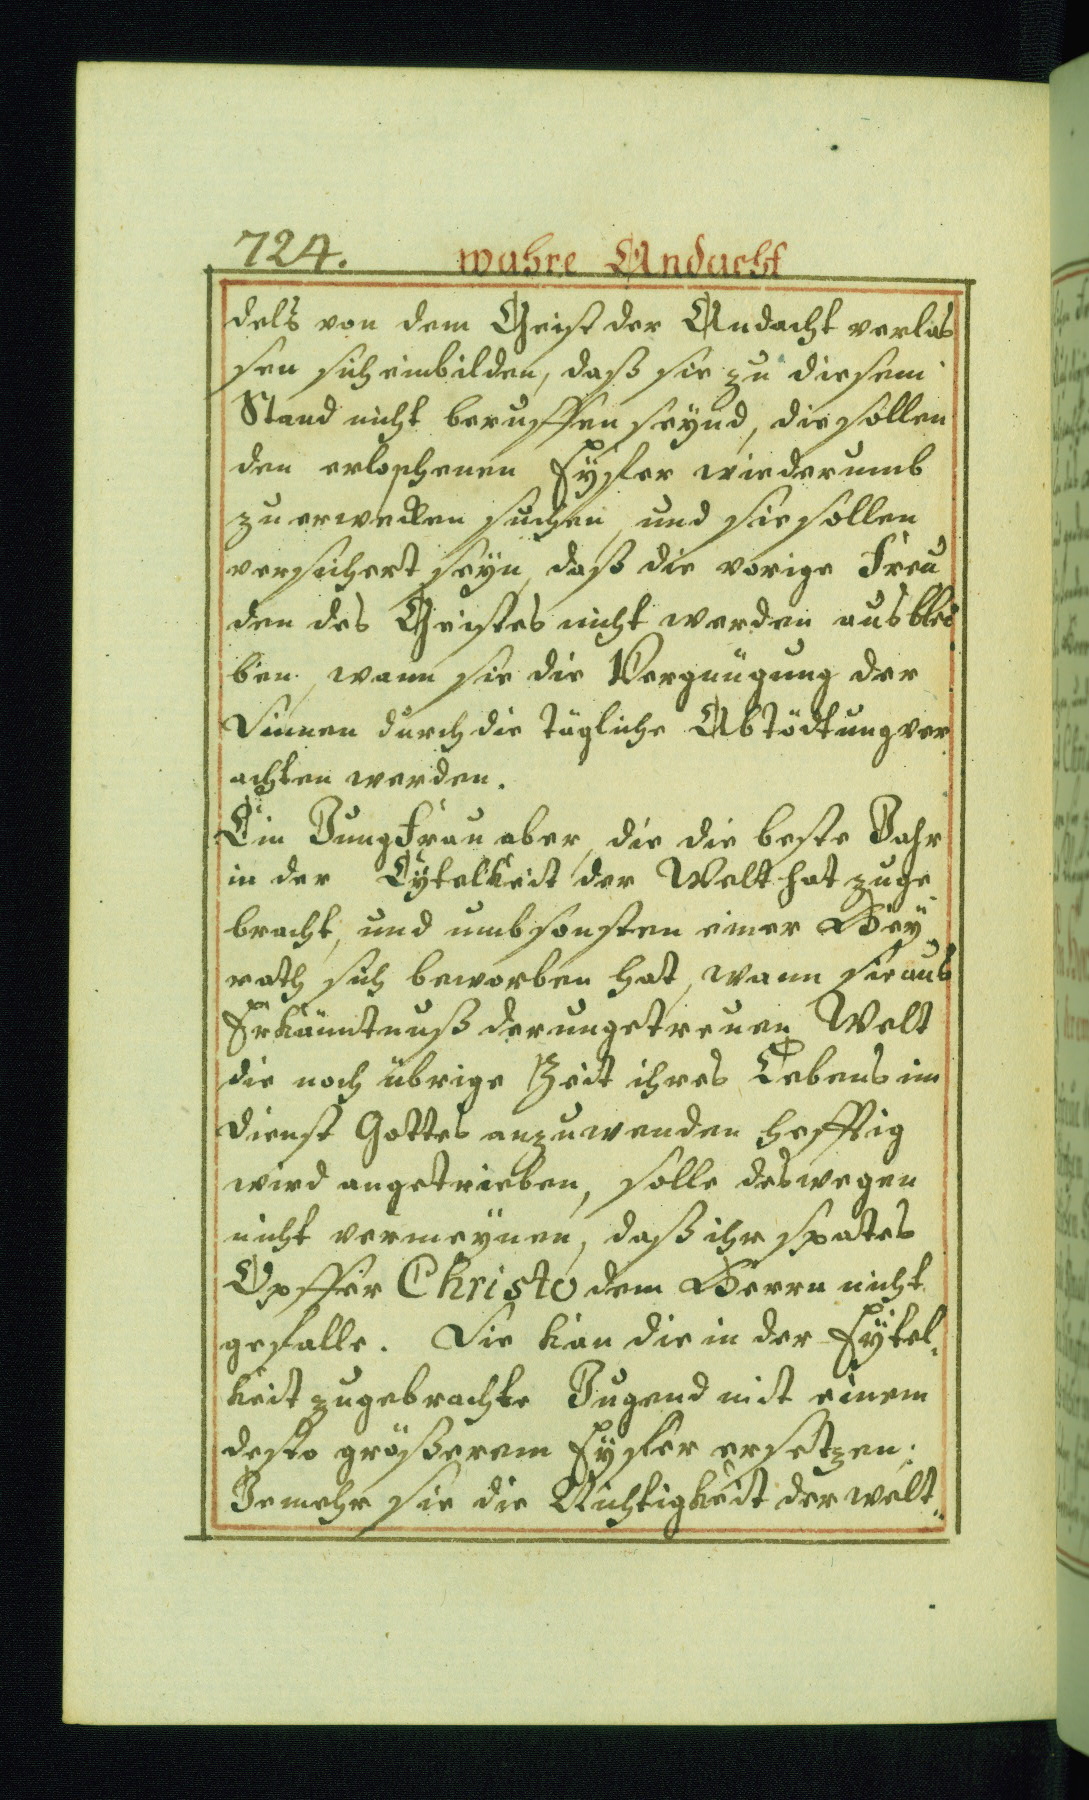 724. wahre Andacht
dels von dem Geist der Andacht verlas
sen sich einbilden, daß sie zu diesem
Stand nicht beruffen seynd, die sollen
den erloschenen Eyfer wiederumb
zu erwecken suchen, und sie sollen
versichert seyn, daß die vorige Freu
den des Geistes nicht werden ausblei
ben, wann sie die Vergnügung der
Sinnen durch die tägliche Abtödtung ver
achten werden.
Ein Jungfrau aber, die die beste Jahr
in der Eytelkeit der Welt hat zuge
bracht, und umbsonsten einer Hey
rath sich beworben hat, wann sie aus
Erkänntnuß der ungetreuen Welt
die noch übrige Zeit ihres Lebens im
Dienst Gottes anzuwenden hefftig
wird angetrieben, solle deswegen
nicht vermeynen, daß ihr spates
Opffer Christo dem Herrn nicht
gefalle. Sie kan die in der Eytel-
keit zugebrachte Jugend mit einem
desto größerem Eyfer ersetzen.
Jemehr sie die Nichtigkeit der welt-